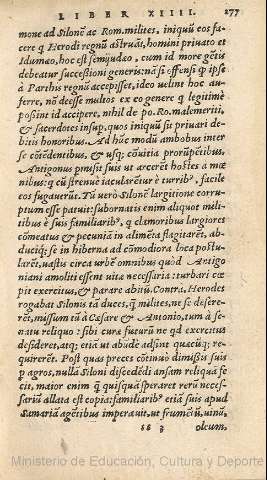 LIBER XIIII. 277
mone ad Silonē ac Rom. milites, iniquū eos fa-
cere q̃ Herodi regnū aſtruāt, homini priuato et
Idumæo, hoc eſt ſemijudæo, cum id more gẽtis
debeatur ſucceſſioni generis: nā ſi offenſi q̃ ipſe
à Parthis regnū accepiſſet, ideo uelint hoc au-
ferre, nō deeſſe multos ex eo genere q̃ legitimè
poſsint id accipere, nihil de po. Ro. malemeriti,
& ſacerdotes inſup, quos iniquū ſit priuari de-
bitis honoribus. Ad hūc modū ambobus inter
ſe cōtēdentibus, & uſq; cōuitia prorūpētibus,
Antigonus pmiſit ſuis ut arceret hoſtes a mœ
nibus: q cū ſtrenuè iacularētur è turrib', facilè
eos fugauerūt. Tū uerò Silonē largitione corru-
ptum eſſe patuit: ſubornatis enim aliquot mili-
tibus è ſuis familiarib', q clamoribus largiorē
cōmeatus & pecuniā in alimēta flagitarēt, ab-
duciq; ſe in hiberna ad cōmodiora loca poſtu-
larēt, uaſtis circa urbē omnibus quòd Antigo
niani amoliti eſſent uitæ neceſſaria: turbari cœ
pit exercitus, & parare abitū. Contrà, Herodes
rogabat Silonis tā duces, q̃ milites, ne ſe deſere-
rēt, miſſum tū à Cæſare & Antonio, tum à ſe-
natu reliquo: ſibi curæ futurū ne qd exercitus
deſideret, atq; etiā ut abūde adſint quæcūq; re-
quirerēt. Póſt quas preces cōtinuò dimiſsis ſuis
p agros, nullā Siloni diſcedēdi anſam reliquā fe
cit, maior enim q̃ quiſquā ſperaret rerū neceſ-
ſariū allata eſt copia: familiarib' etiā ſuis apud
Samariā agētibus imperauit, ut frumētū, uinū,
ss 3 oleum,
Ministerio de Educación, Cultura y Deporte